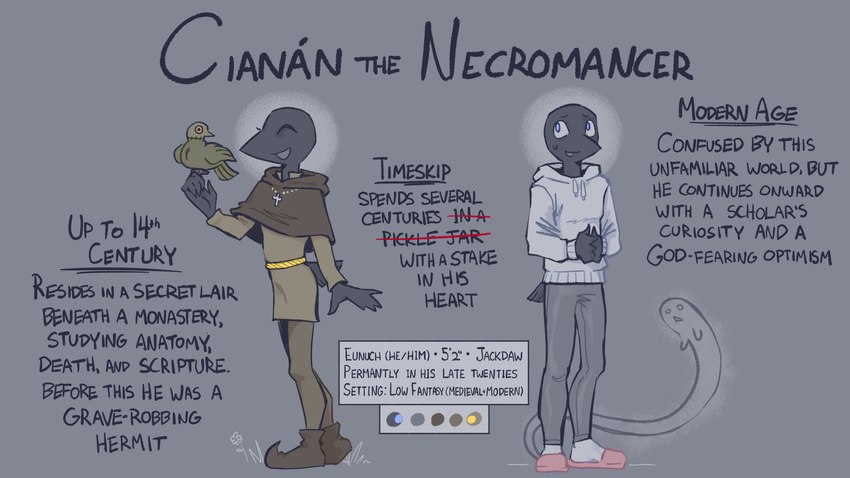 CIANÁN THE NECROMANCER
UP TO 14th
CENTURY
RESIDES IN A SECRET LAIR
BENEATH A MONASTERY,
STUDYING ANATOMY,
DEATH, AND SCRIPTURE.
BEFORE THIS HE WAS A
GRAVE-ROBBING
HERMIT
TIMESKIP
SPENDS SEVERAL
CENTURIES IN A
PICKLE JAR
WITH A STAKE
IN HIS
HEART
EUNUCH (HE/HIM) • 5'2" • JACKDAW
PERMANTLY IN HIS LATE TWENTIES
SETTING: LOW FANTASY (MEDIEVAL+MODERN)
MODERN AGE
CONFUSED BY THIS
UNFAMILIAR WORLD, BUT
HE CONTINUES ONWARD
WITH A SCHOLAR'S
CURIOSITY AND A
GOD-FEARING OPTIMISM